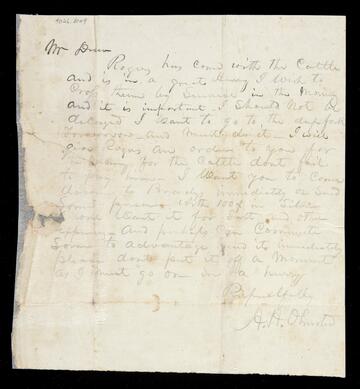 4026.1009
Mr Drew
Rogers has come with the Cattle
and is in a great Hurry I wish to
Cross them at Sunrise in the Morning
and it is important I should Not be
delayed I want to go to the
Tomorrow and Must do it I will
give Rogers an order to you for
the Money for the Cattle dont fail
to pay him I Want you to Come
down to Brady immediately or Send
Some person with 100$ in Silver
I want it for Salt and other
and perhaps Can
Some to advantage send it immediately
please dont put it off a Moment
as I must go on in a hurry
Respectfully
A. H. Olmsted